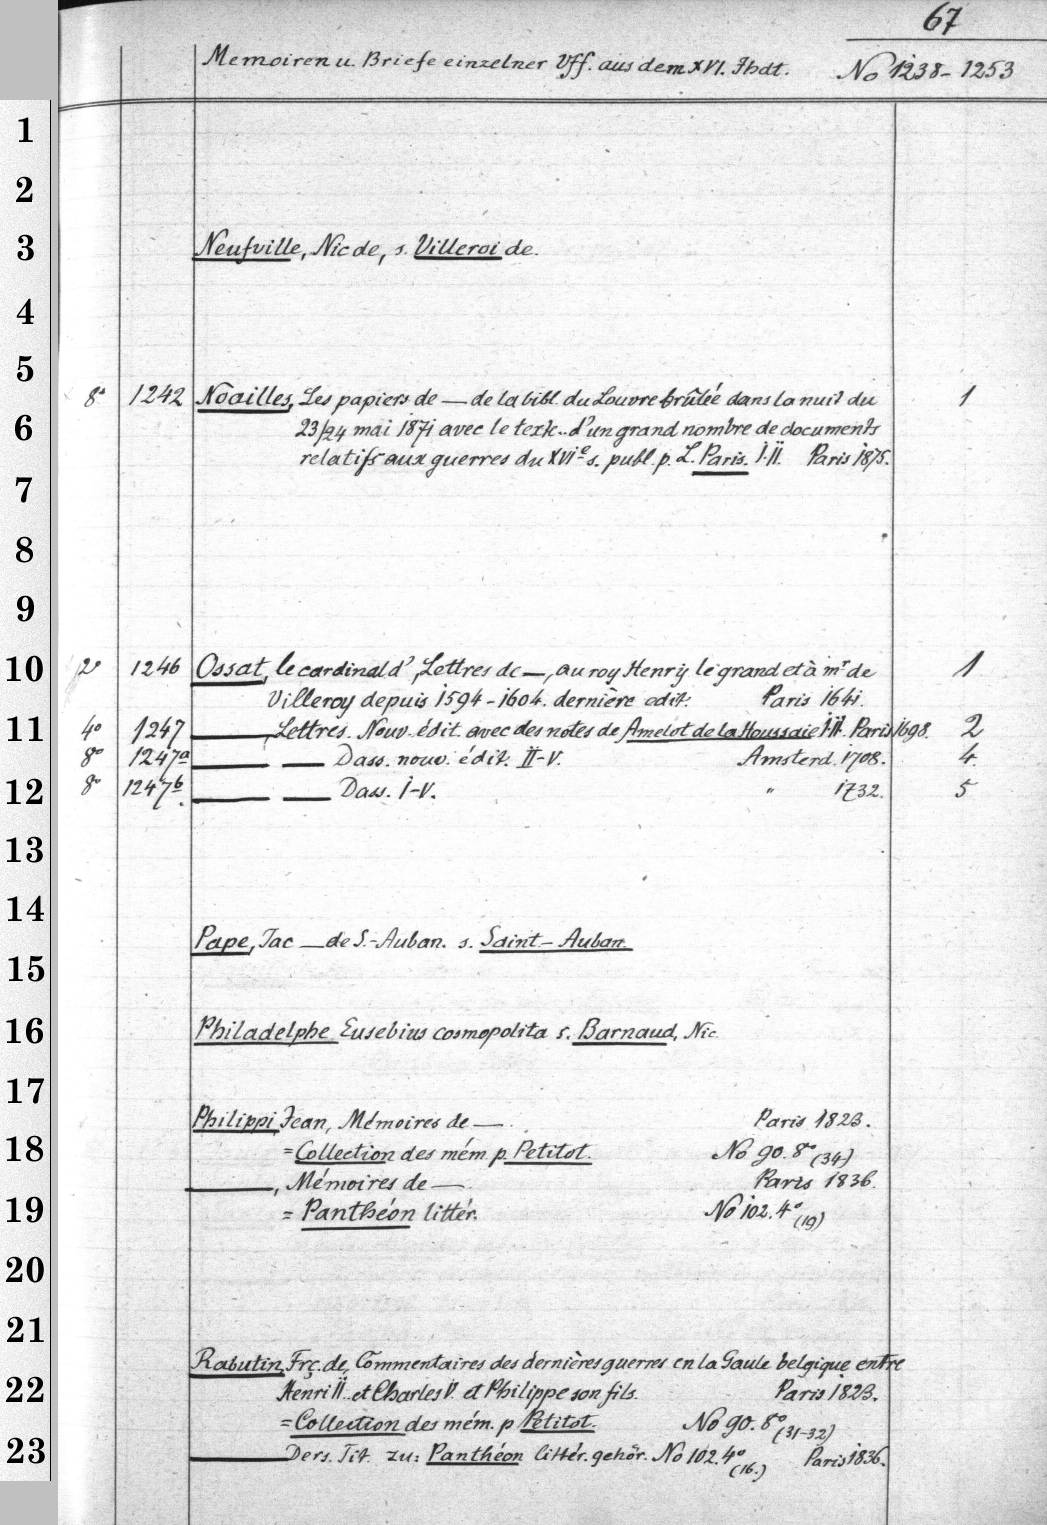 67
Memoiren u. Briefe einzelner Vff. aus dem XVI. Jhdt. No 1238-1253
1
2
3 Neufville, Nic de, s. Villeroi de.
4
5
8° 1242 Noailles, Les papiers de — de la bibl. du Louvre brûlée dans la nuit du 1
6 23/24 mai 1871 avec le texte d'un grand nombre de documents
relatifs aux guerres du XVIe s. publ. p. L. Paris. I-II. Paris 1875.
7
8
9
10 2° 1246 Ossat, le cardinal d', Lettres de —, au roy Henry le grand et à mr de 1
Villeroy depuis 1594-1604. dernière edit. Paris 1641.
11 4° 1247 ——, Lettres. Nouv. édit. avec des notes de Amelot de la Houssaie I-II. Paris 1698. 2
8° 1247a —— — Dass. nouv. édit. II-V. Amsterd. 1708. 4
12 8° 1247b —— — Dass. I-V. " 1732. 5
13
14
Pape, Jac — de S.-Auban. s. Saint-Auban.
15
16 Philadelphe Eusebius cosmopolita s. Barnaud, Nic.
17
Philippi, Jean, Mémoires de —. Paris 1823.
18 = Collection des mém. p. Petitot. No 90. 8° (34)
——, Mémoires de —. Paris 1836.
19 = Panthéon littér. No 102. 4° (19)
20
21
Rabutin, Frç. de, Commentaires des dernières guerres en la Gaule belgique entre
22 Henri II. et Charles V. et Philippe son fils. Paris 1823.
= Collection des mém. p Petitot. No 90. 8° (31-32)
23 —— Ders. Tit. zu: Panthéon littér. gehör. No 102. 4° (16.) Paris 1836.